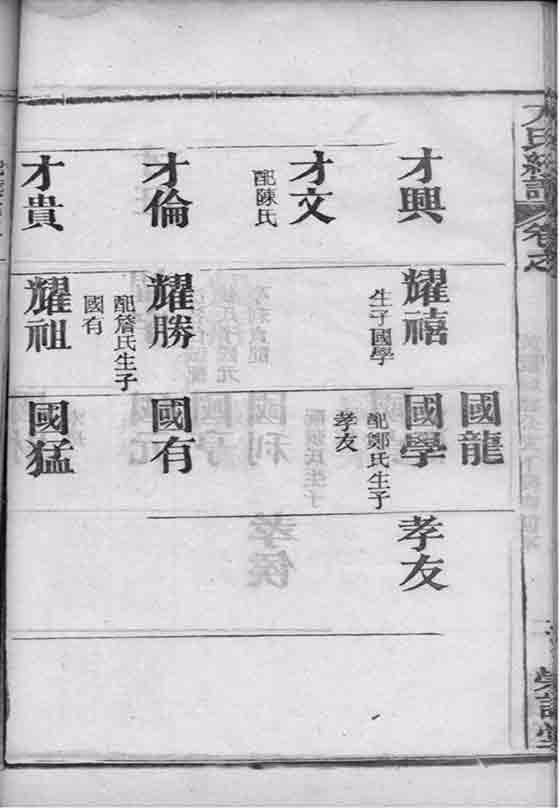 才興
才文
配陳氏
才倫
才貴
耀禧
生子國學
耀勝
配詹氏生子
國有
耀祖
國龍
國學
配鄭氏生子
孝友
國有
國猛
孝友